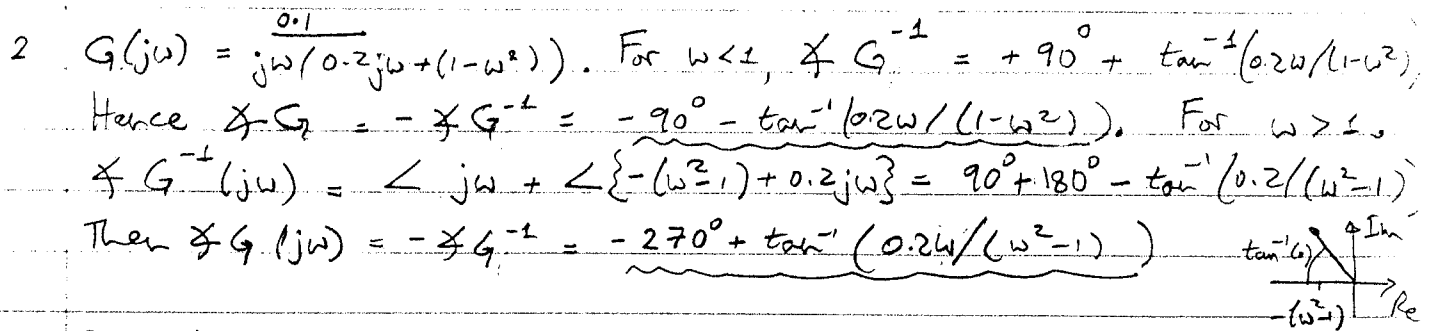 2 G(jω) = 0.1 / jω(0.2jω+(1-ω²)). For ω<1, ∡ G⁻¹ = +90° + tan⁻¹(0.2ω/(1-ω²)
Hence ∡G = -∡G⁻¹ = -90° - tan⁻¹(0.2ω/(1-ω²)). For ω>1,
∡ G⁻¹(jω) = ∠ jω + ∠{-(ω²-1)+0.2jω} = 90°+180° - tan⁻¹(0.2/(ω²-1)
Then ∡G(jω) = -∡G⁻¹ = -270° + tan⁻¹(0.2ω/(ω²-1))
Im
tan⁻¹(·)
Re
-(ω²-1)